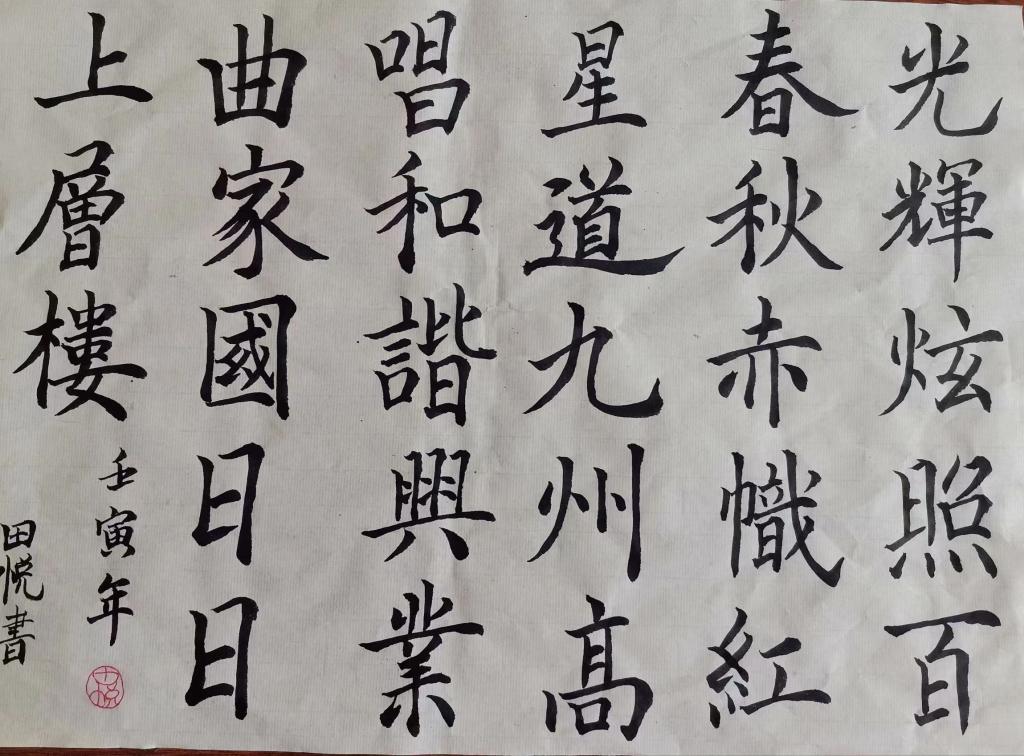 光輝炫照百
春秋赤幟紅
星道九州高
唱和諧興業
曲家國日日
上層樓
壬寅年
田悦書